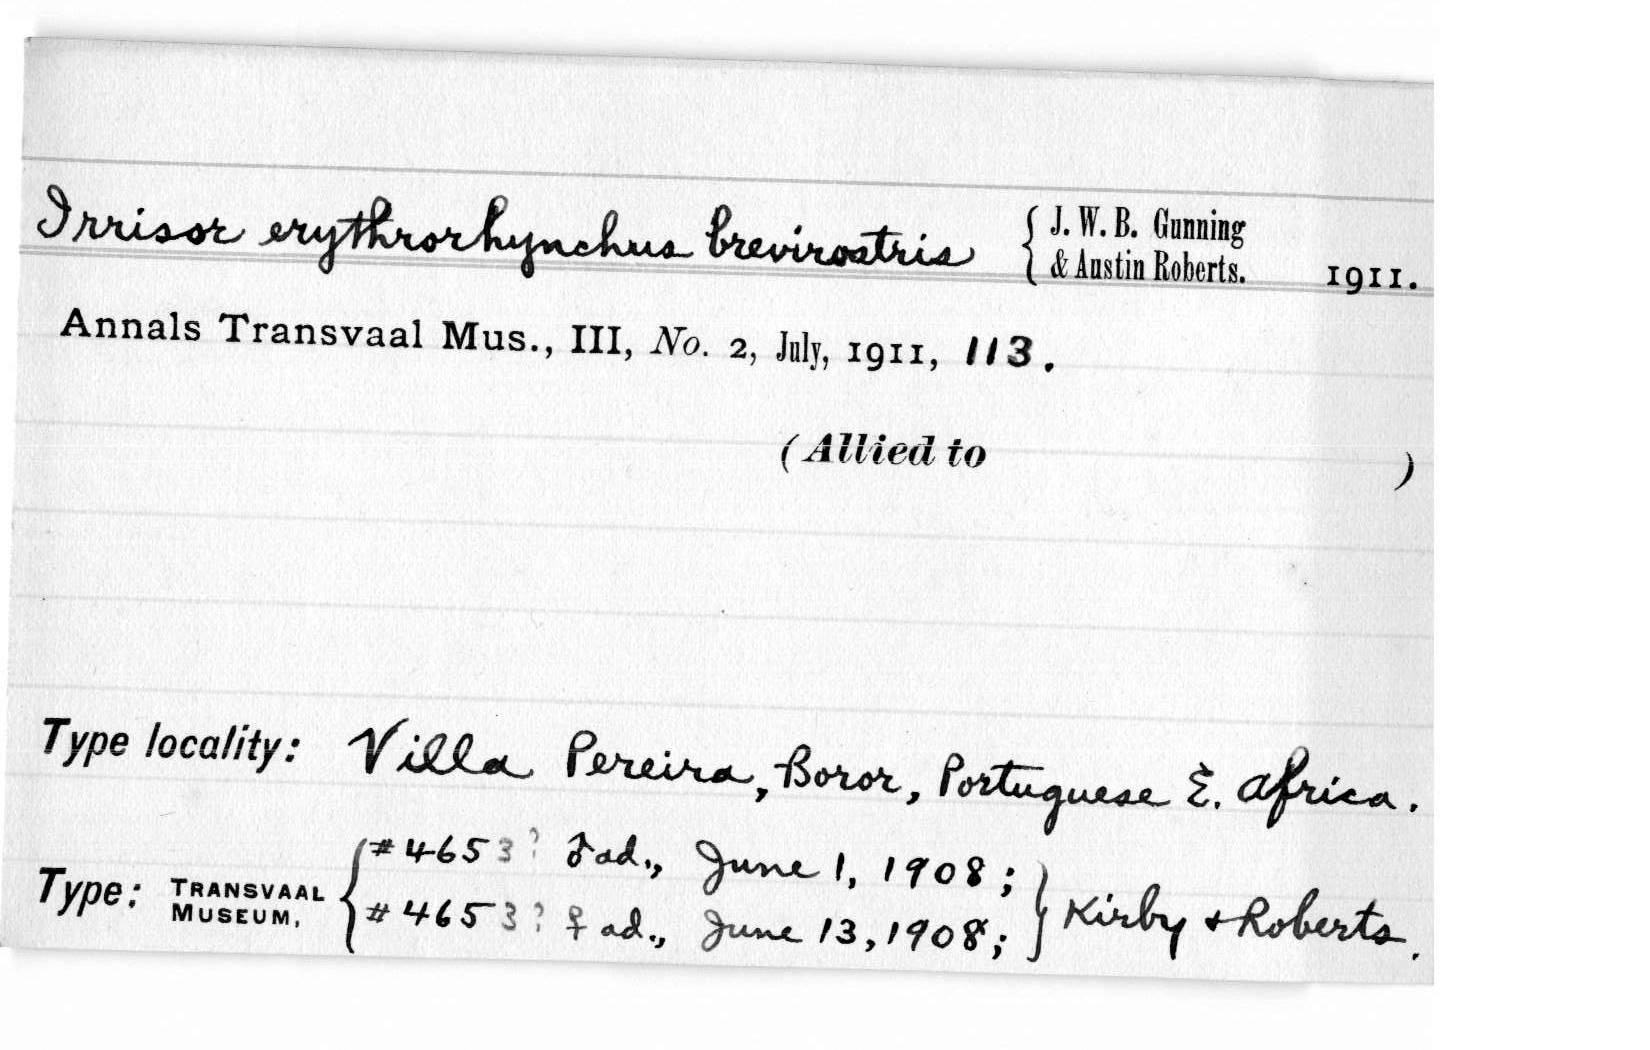 Irrisor erythrorhynchus brevirostris { J. W. B. Gunning
& Austin Roberts. 1911.
Annals Transvaal Mus., III, No. 2, July, 1911, 113.
(Allied to )
Type locality: Villa Pereira, Boror, Portuguese E. Africa.
Type: TRANSVAAL MUSEUM, { #4653? ♂ ad., June 1, 1908;
#4653? ♀ ad., June 13, 1908; } Kirby & Roberts.